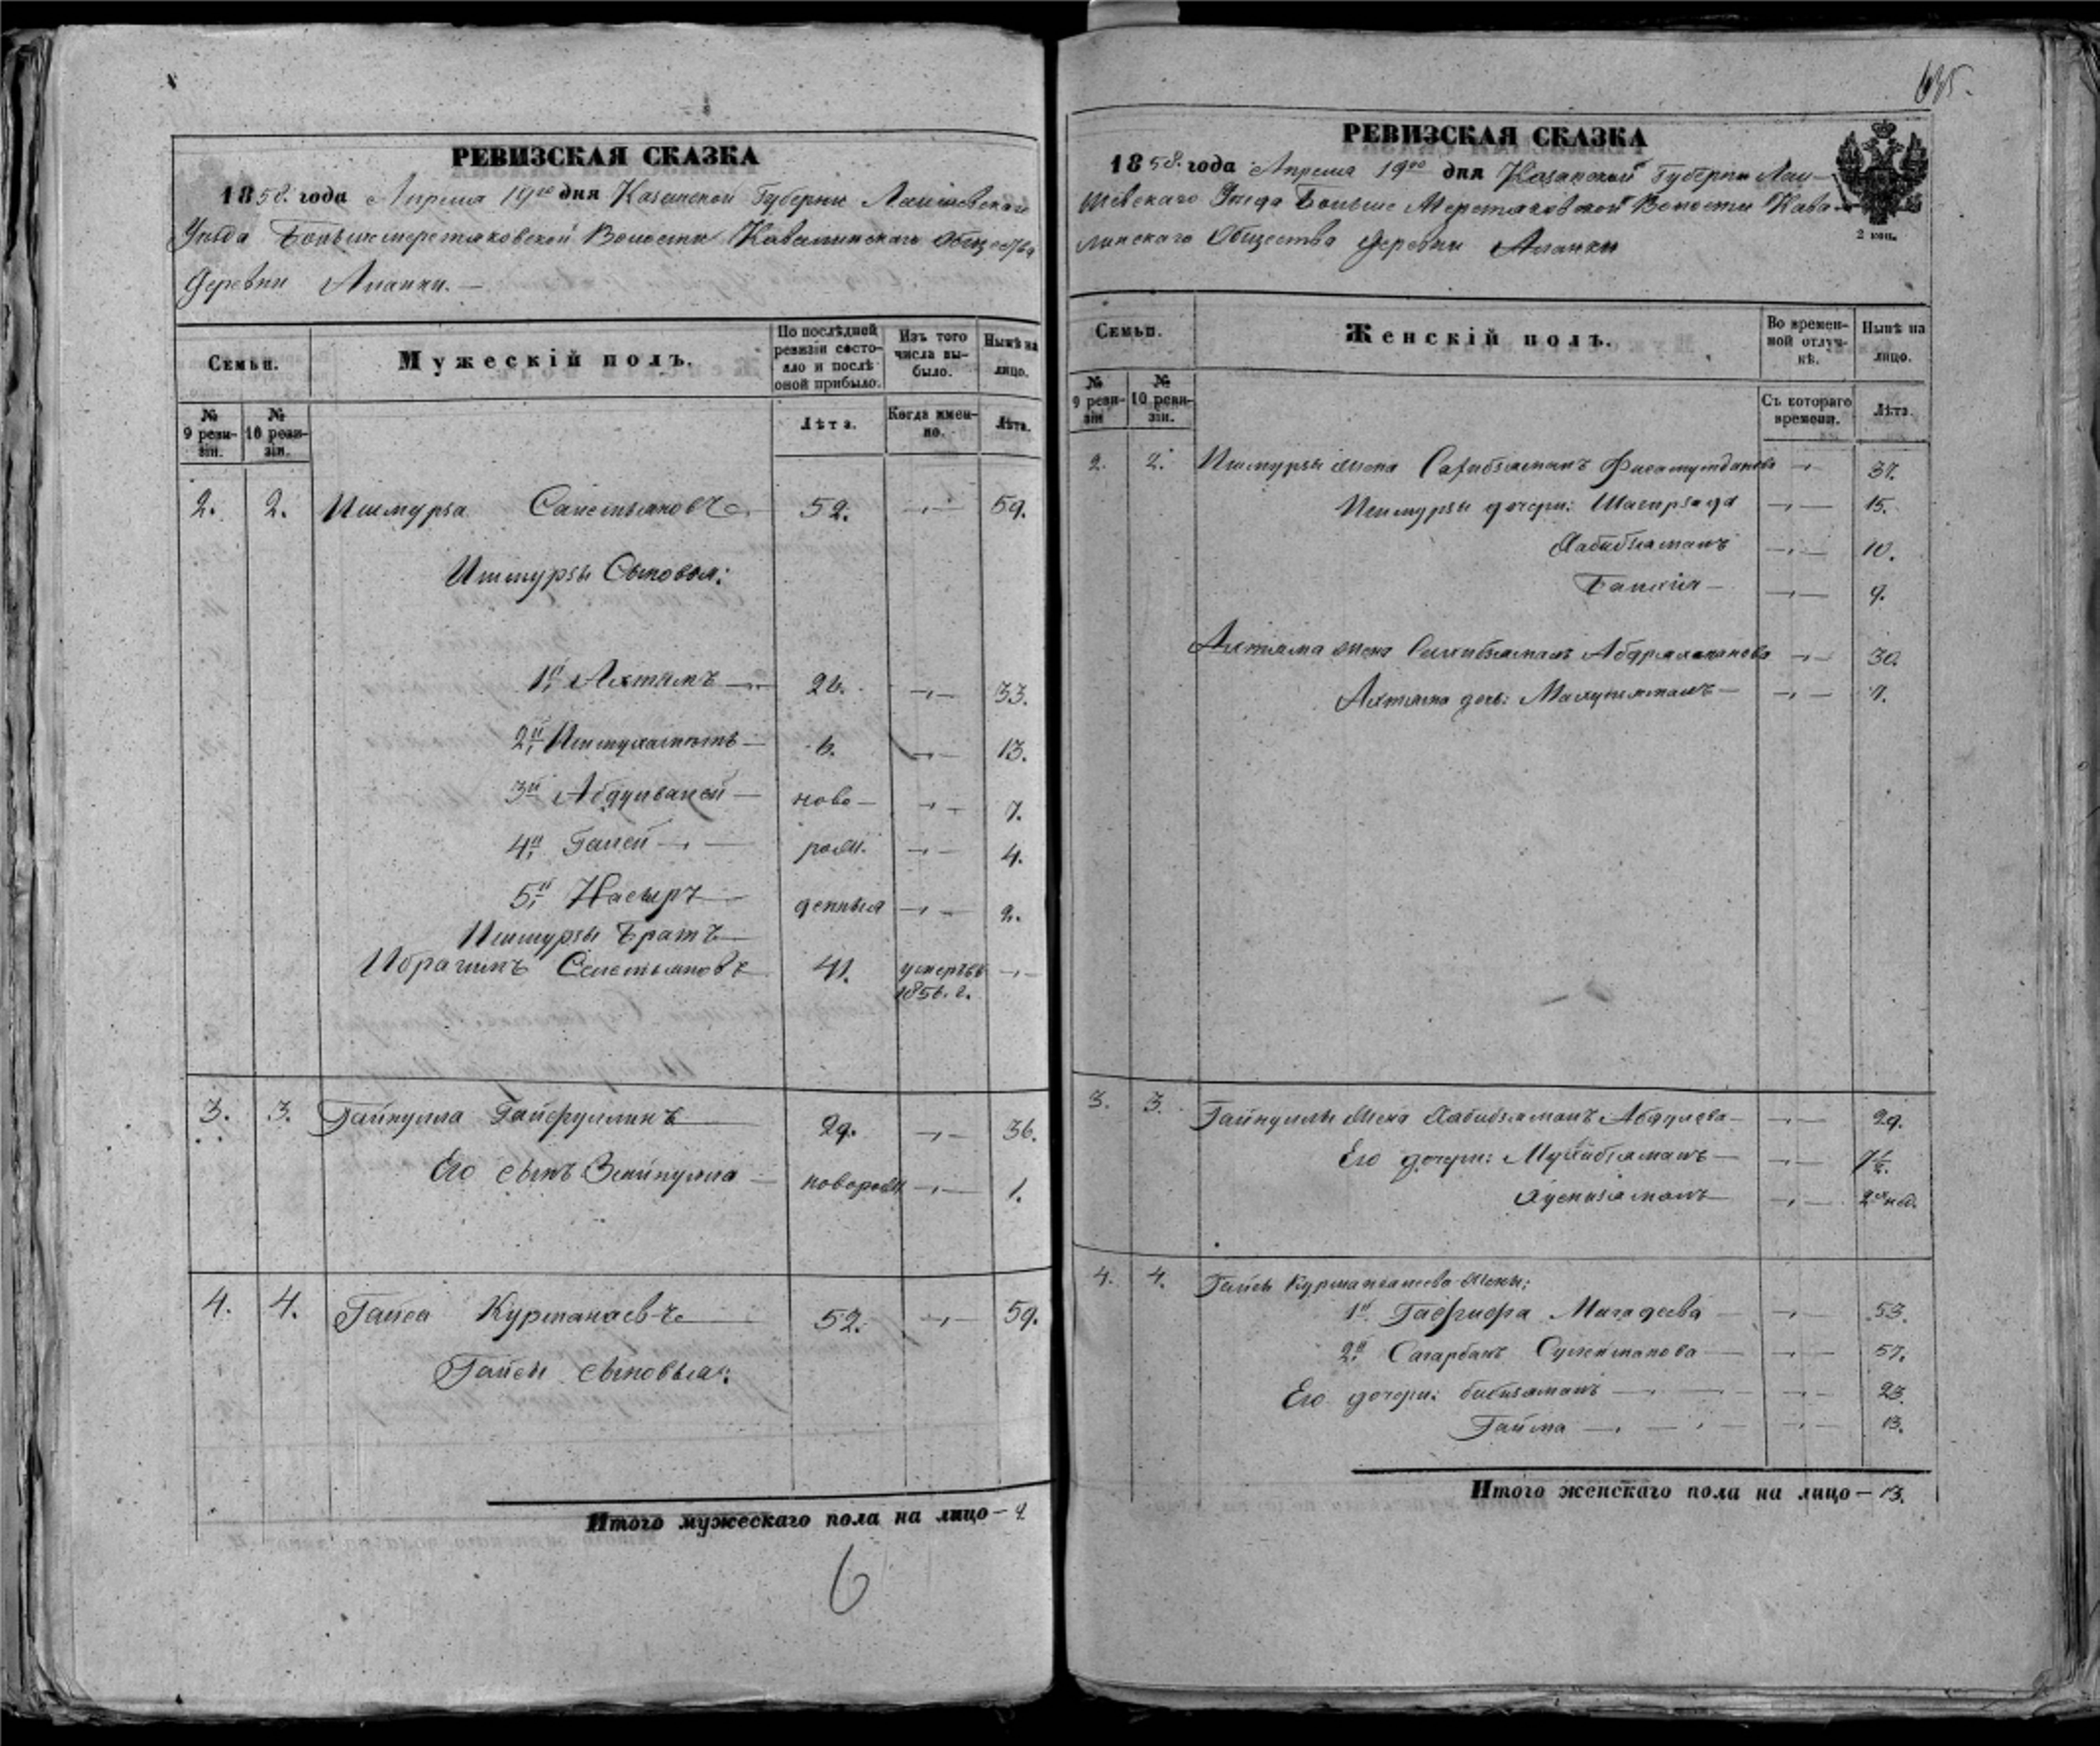 635.
РЕВИЗСКАЯ СКАЗКА
1858. года Апреля 19го дня Казанской Губернии Лаишевскаго
Уезда Большемереттяковской Волости Кавалинскаго Общества
Деревни Аланки. —
Семьи.
Мужескій полъ.
По послѣдней ревизіи состояло и послѣ оной прибыло.
Изъ того числа выбыло.
Нынѣ на лицо.
№ 9 ревизіи.
№ 10 ревизіи.
Лѣта.
Когда именно.
Лѣта.
2. 2. Ишмурза 52. 59.
Ишмурзы Сыновья:
1й Ахтямъ 26. 33.
2й Ишмухаметъ 6. 13.
3й Абдулвалей ново— 7.
4й Галей рожд. 4.
5й Насыръ денныя 2.
Ишмурзы Братъ
Ибрагимъ 41. умеръ въ
1856. г.
3. 3. Гайнулла Гайфуллинъ 29. 36.
Его сынъ Зайнулла новорожд. 1.
4. 4. Гайса Курманаевъ 52. 59.
Гайсы сыновья:
Итого мужескаго пола на лицо — 9
6
РЕВИЗСКАЯ СКАЗКА
1858. года Апреля 19го дня Казанской Губернии Лаи—
шевскаго Уезда Больше Мереттяковской Волости Кава—
линскаго Общества Деревни Аланки
2 коп.
Семьи.
Женскій полъ.
Во временной отлучкѣ.
Нынѣ на лицо.
№ 9 ревизіи
№ 10 ревизіи.
Съ котораго времени.
Лѣта.
2. 2. Ишмурзы жена 37.
Ишмурзы дочери: 15.
Хабибзямалъ 10.
9.
Ахтяма жена 30.
Ахтяма дочь: 7.
3. 3. Гайнуллы жена Хабибзямалъ Абдулева 29.
Его дочери: 7½.
Хуснизямалъ 2х нед.
4. 4. Гайсы жены:
1я 53.
2я Сулейманова 57.
Его дочери: бибизямалъ 23.
13.
Итого женскаго пола на лицо — 13.